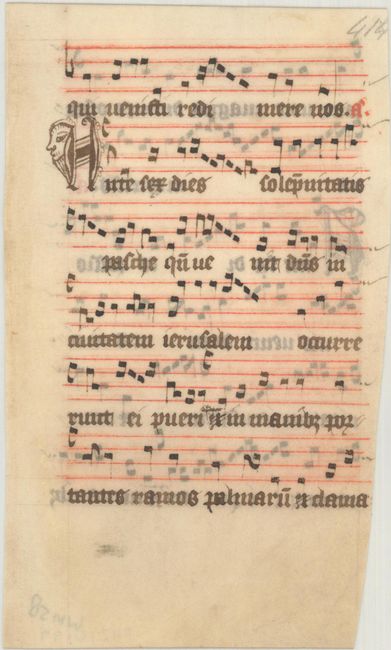 414
qui uenisti redi mere nos. a.
Ante sex dies solẽpnitatis
pasche qñ ue nit dñs in
ciuitatem ierusalem occurre
runt ei pueri & in manibꝫ por
tantes ramos palmarũ & clama